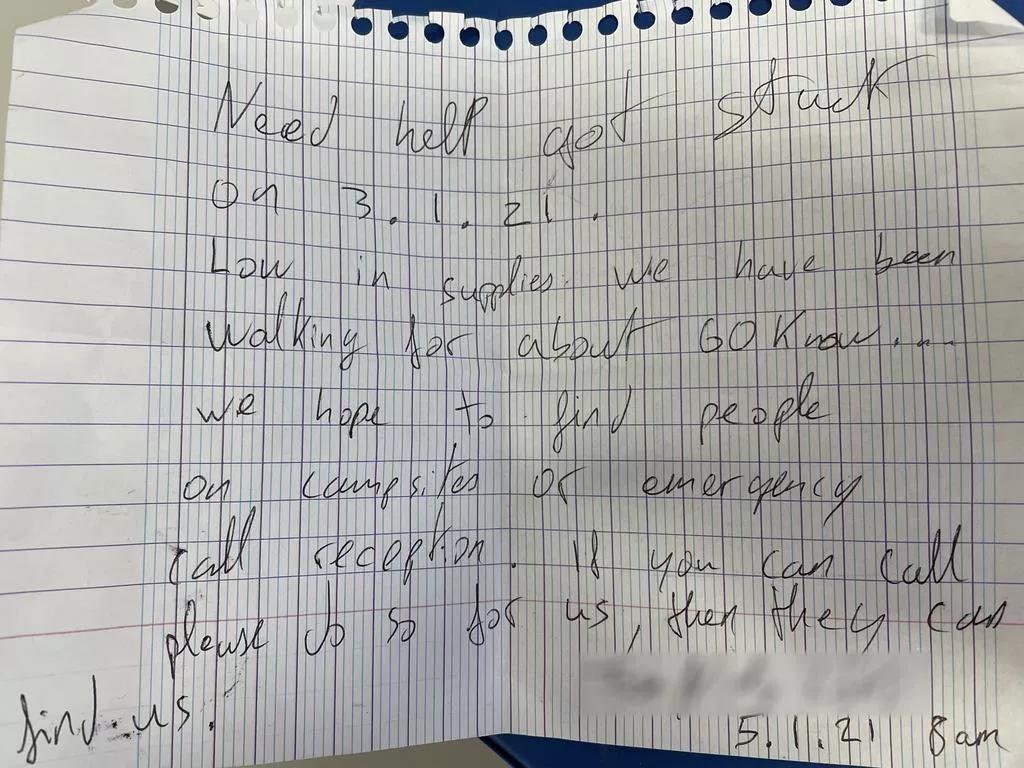 Need help got stuck
on 3.1.21.
Low in supplies. we have been
walking for about 60 Know....
we hope to find people
on campsites or emergency
call reception. If you can call
please do so for us, then they can
find us.
5.1.21 8am